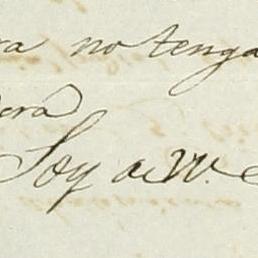 ra no tenga
era
Soy a V.